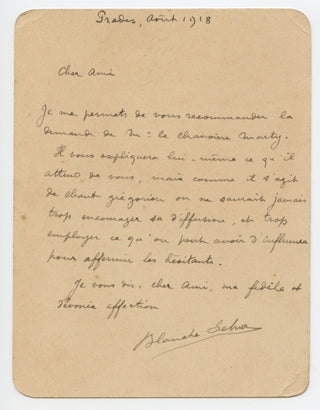 Prades, Août 1918
Cher Ami
Je me permets de vous recommander la
demande de Mr: le chanoine Marty.
Il vous expliquera lui-même ce qu'il
attend de vous, mais comme il s'agit
de chant grégorien on ne saurait jamais
trop encourager sa diffusion, et trop
employer ce qu'on peut avoir d'influence
pour affermir les hésitants.
Je vous dis, cher Ami, ma fidèle et
dévouée affection
Blanche Selva